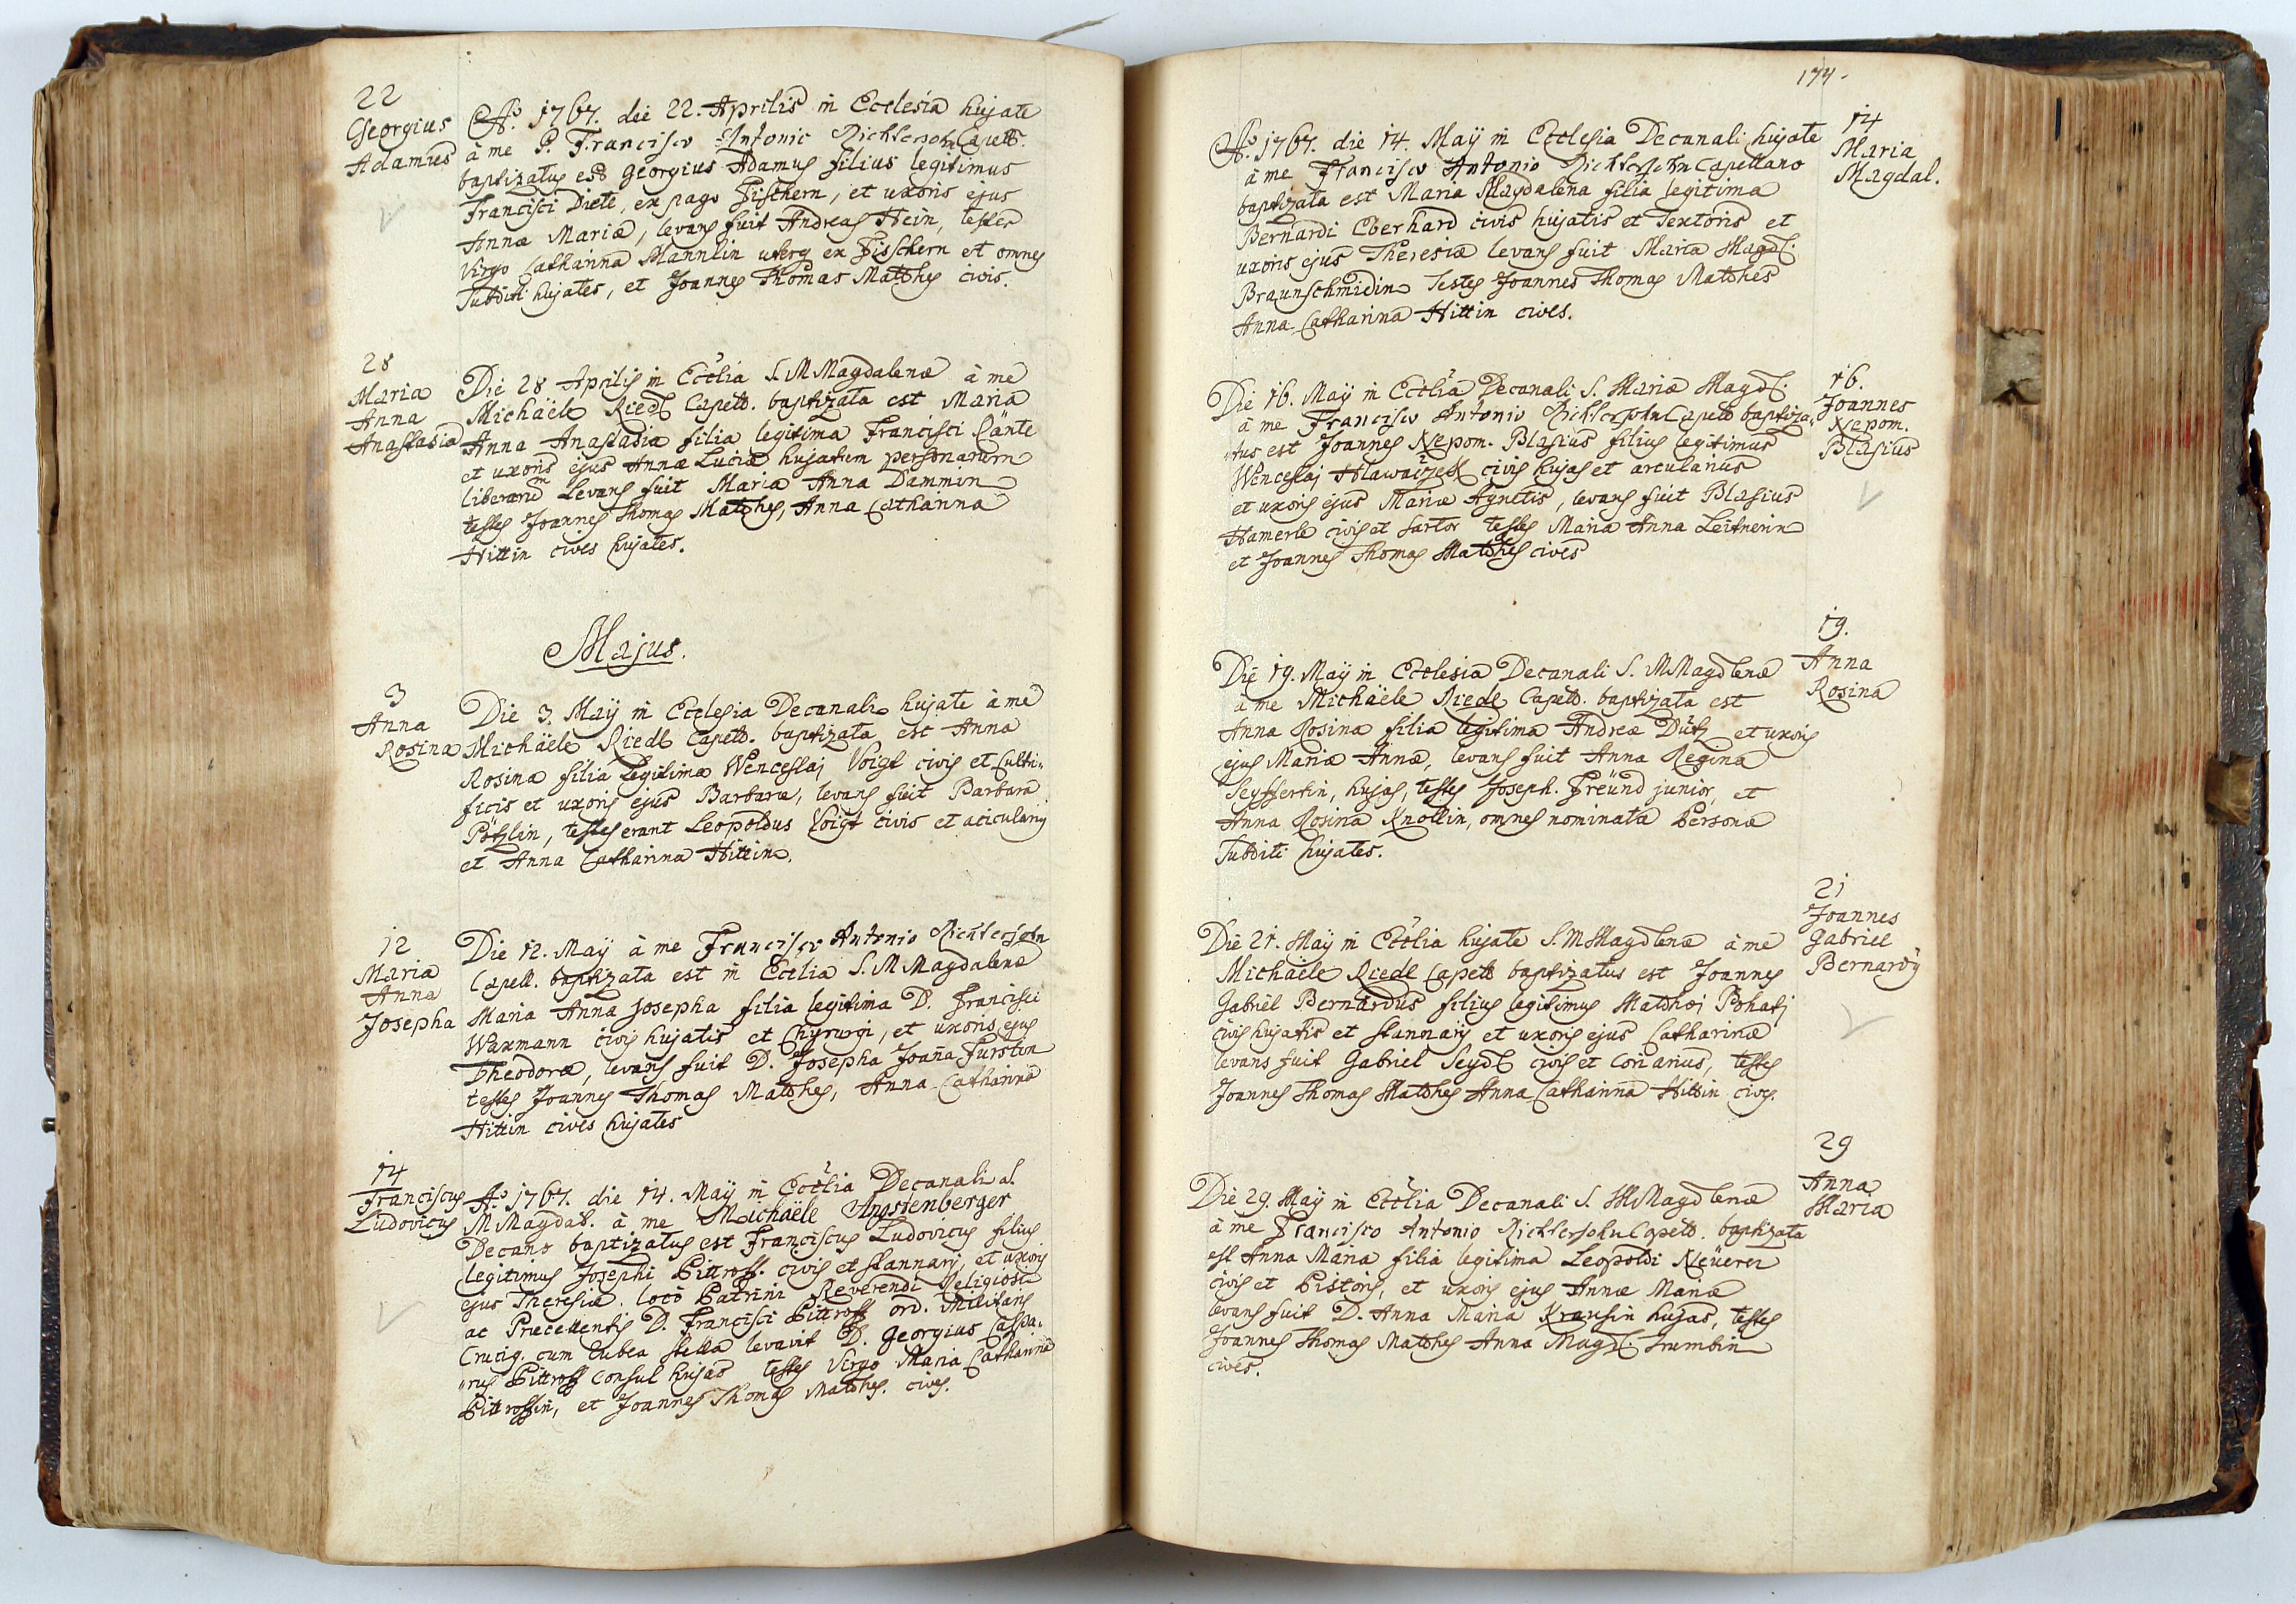 22
Georgius
Adamus
Ao. 1767. die 22. Aprilis in Ecclesia hujate
à me P. Francisco Antonio Richtersohn Capell.
baptizatus est Georgius Adamus filius legitimus
Francisci Diete, ex pago Fischern, et uxoris ejus
Annæ Mariæ, levans fuit Andreas Hein, testes
Virgo Catharina Mannlin uterq ex Fisschern et omnes
Subditi hujates, et Joannes Thomas Matthes civis.
28
Maria
Anna
Anastasia
Die 28 Aprilis in Ecclia S. M Magdalenæ à me
Michäele Riedl Capell. baptizata est Maria
Anna Anastasia filia legitima Francisci Cänte
et uxoris ejus Annæ Luciæ hujatum personarum
liberarum Levans fuit Maria Anna Dammin
testes Joannes Thomas Matthes, Anna Catharina
Hittin cives hujates.
Majus.
3
Anna
Rosina
Die 3. Maÿ in Ecclesia Decanali hujate à me
Michäele Riedl Capell. baptizata est Anna
Rosina filia Legitima Wenceslaj Voigt civis et Culti„
ficis et uxoris ejus Barbaræ, levans fuit Barbara
Pötzlin, testes erant Leopoldus Voigt civis et acicularius
et Anna Catharina Hittin.
12
Maria
Anna
Josepha
Die 12. Maÿ à me Francisco Antonio Richtersohn
Capell. baptizata est in Ecclia S. M Magdalenæ
Maria Anna Josepha filia legitima D. Francisci
Waxmann civis hujatis et Chyrurgi, et uxoris ejus
Theodoræ, levans fuit D. Josepha Joanna Furstin
testes Joannes Thomas Matthes, Anna Catharina
Hittin cives hujates
14
Franciscus
Ludovicus
Ao. 1767. die 14. Maÿ in Ecclia Decanali S.
M Magdal. à me Michäele Angstenberger
Decano baptizatus est Franciscus Ludovicus filius
legitimus Josephi Pittroff civis et stannarÿ, et uxoris
ejus Theresiæ. locò Patrini Reverendi Religiosi
ac Præcellentis D. Francisci Pittroff ord. Militaris
Crucig. cum rubea stella levavit D. Georgius Caspa„
„rus Pittroff Consul hujas testes Virgo Maria Catharina
Pittroffin, et Joannes Thomas Matthes. cives.
174.
Ao. 1767. die 14. Maÿ in Ecclesia Decanali hujate
à me Francisco Antonio Richtersohn Capellano
baptizata est Maria Magdalena filia legitima
Bernardi Eberhard civis hujatis et Textoris et
uxoris ejus Theresiæ levans fuit Maria Magdl.
Braunschmidin Testes Joannes Thomas Matthes
Anna Catharina Hittin cives.
14
Maria
Magdal.
Die 16. Maÿ in Ecclia Decanali S. Mariæ Magdl.
à me Francisco Antonio Richtersohn Capell baptiza„
„tus est Joannes Nepom. Blasius filius legitimus
Wenceslaj Hlawaczek civis hujas et arcularius
et uxoris ejus Mariæ Agnetis, levans fuit Blasius
Hamerle civis et sartor testes Maria Anna Leitnerin
et Joannes Thomas Matthes cives
16.
Joannes
Nepom.
Blasius
Die 19. Maÿ in Ecclesia Decanali S. M Magdlenæ
à me Michäele Riedl Capell. baptizata est
Anna Rosina filia legitima Andreæ Dütz et uxoris
ejus Mariæ Annæ, levans fuit Anna Regina
Seyffertin, hujas, testes Joseph. Freünd junior, et
Anna Rosina Knollin, omnes nominata Persona
Subditi hujates.
19.
Anna
Rosina
Die 21. Maÿ in Ecclia hujate S. M Magdlenæ à me
Michäele Riedl Capell baptizatus est Joannes
Gabriel Bernardus filius legitimus Matthæi Pohatj
civis hujatis et stannarÿ et uxoris ejus Catharinæ
levans fuit Gabriel Seydl civis et Coriarius, testes
Joannes Thomas Matthes Anna Catharina Hittin cives.
21
Joannes
Gabriel
Bernardÿ
Die 29. Maÿ in Ecclia Decanali S. M Magdlenæ
à me Francisco Antonio Richtersohn Capell. baptizata
est Anna Maria filia legitima Leopoldi Neüerer
civis et Pistoris, et uxoris ejus Annæ Mariæ
levans fuit D. Anna Maria Krausin hujas, testes
Joannes Thomas Matthes Anna Magdl. Trumbin
cives.
29
Anna
Maria